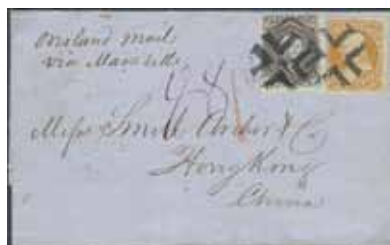 Overland Mail
via Marseilles
Messrs Smith Archer & Co
Hong Kong
China